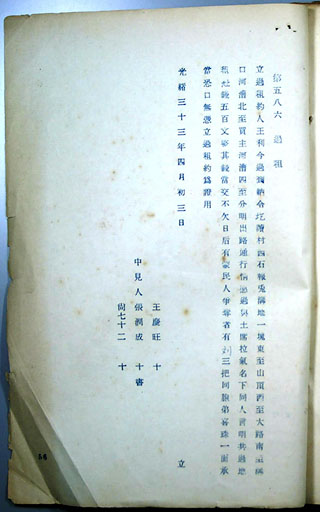 信五八六 過租
立過租約人王利今過到納令圪𡒄村西石報兎溝地一塊東至山頂西至大路南至溝
口河漕北至買主河漕四至分明出路通行情愿過與土席拉氣名下同人言明共過應
租地錢五百文整其錢當交不欠日后有蒙民人爭奪者有 三把同胞弟喜珠一面承
當恐口無憑立過租約為證用
光緒三十三年四月初三日 立
王慶旺 十
中見人張潤成 十書
尚七十二 十
58